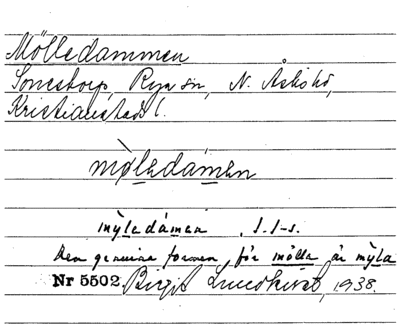 Mölledammen
Sonestorp, Rya sn, N. Åsbo hd,
Kristianstads l.
mø̀ledámen
mỳledámen, I. l-s.
Den genuina formen för mölla är mỳla
Nr 5502. Birgit Lundkvist, 1938.